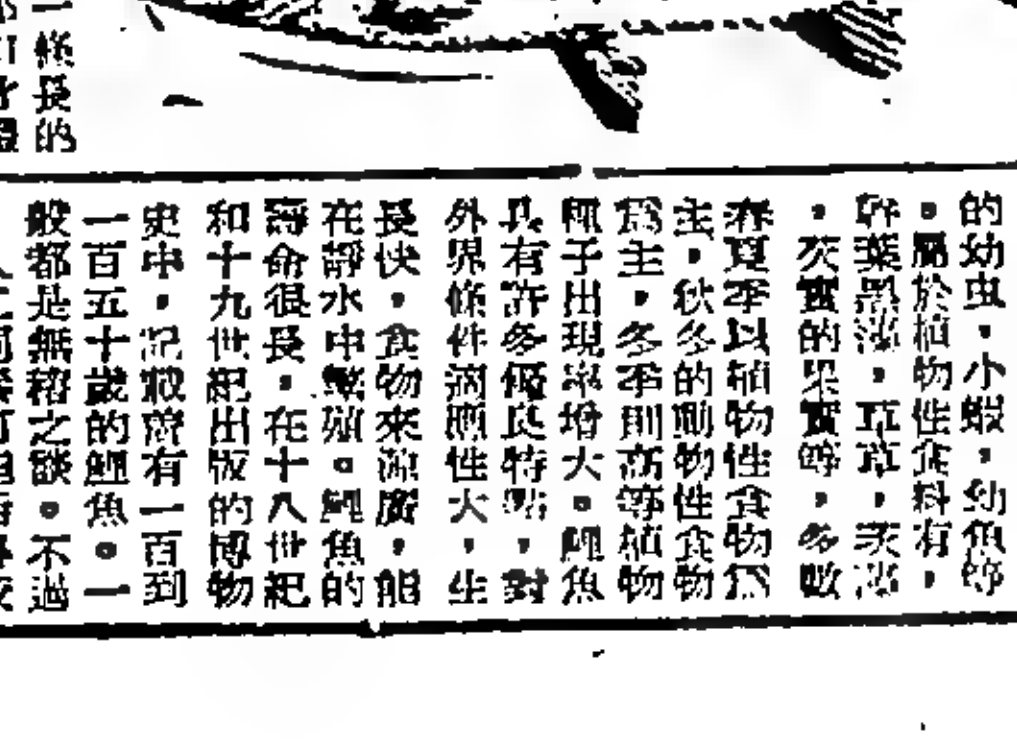 的幼虫,小蝦,幼魚等
。屬於植物性食料有,
葉黑藻,草,茨藻
,芡實的果實等,多數
春夏季以植物性食物爲
主,秋冬的動物性食物
爲主,冬季則高等植物
種子出現率增大。鯉魚
具有許多優良特點,對
外界條件適應性大,生
長快,食物來源廣,能
在靜水中繁殖。鯉魚的
壽命很長,在十八世紀
和十九世紀出版的博物
史中,記載齎有一百到
一百五十歲的鯉魚。一
般都是無稽之談。不過
一條長的